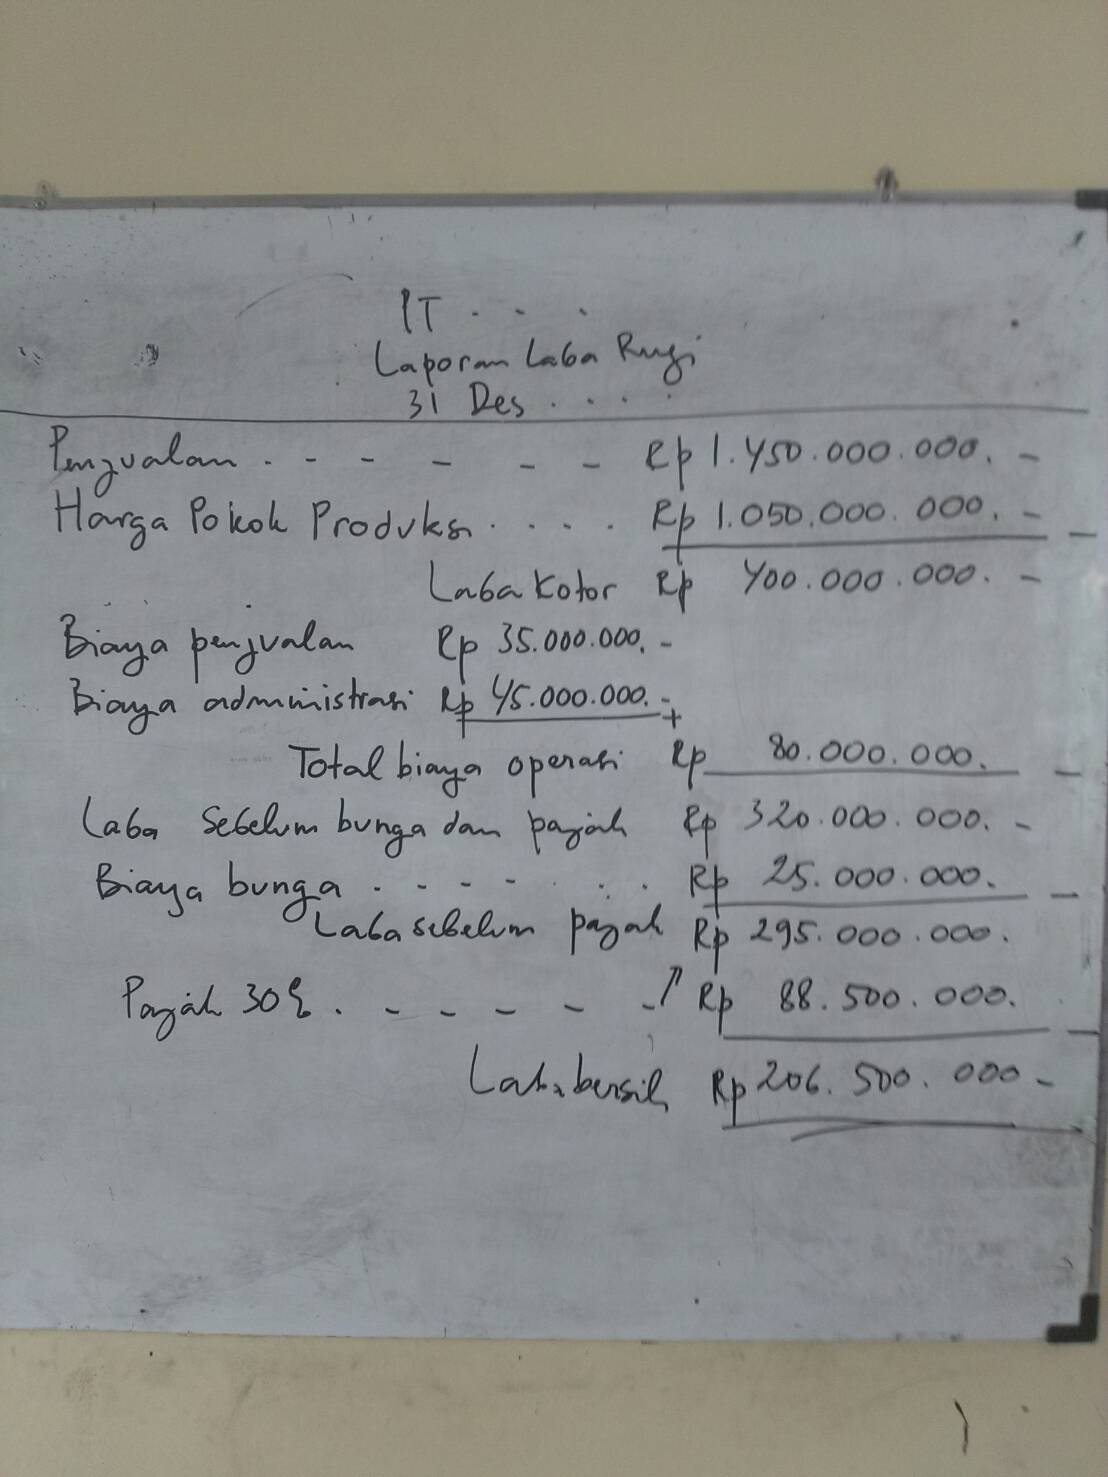 PT . . .
Laporan Laba Rugi
31 Des . . . .
Penjualan . - - - - - Rp 1.450.000.000. -
Harga Pokok Produksi . . . . Rp 1.050.000.000. - -
Laba Kotor Rp 400.000.000. -
Biaya penjualan Rp 35.000.000. -
Biaya administrasi Rp 45.000.000. - +
Total biaya operasi Rp 80.000.000. -
Laba sebelum bunga dan pajak Rp 320.000.000. -
Biaya bunga . - - - - . . . Rp 25.000.000. -
Laba sebelum pajak Rp 295.000.000.
Pajak 30% . - - - - - - Rp 88.500.000. -
Laba bersih Rp 206.500.000 -